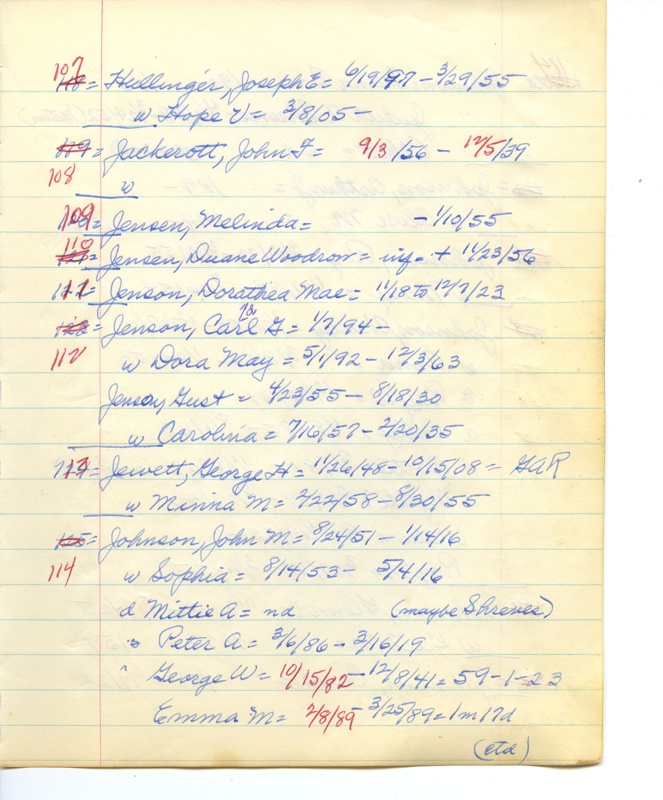 107 = Hullinger, Joseph E = 6/19/97 - 3/29/55
w Hope V = 3/8/05 -
119 = Jackerott, John F = 9/3/56 - 12/5/39
108 w
109 = Jensen, Melinda = - 1/10/55
110 = Jensen, Duane Woodrow = inf. + 11/23/56
111 = Jenson, Dorathea Mae = 11/18 to 12/7/23
= Jenson, Carl G = 1/7/94 -
112 w Dora May = 5/1/92 - 12/3/63
Jenson, Gust = 4/23/55 - 8/18/30
w Carolina = 7/16/57 - 2/20/35
113 = Jewett, George H = 11/26/48 - 10/15/08 = GAR
w Minna M = 2/22/58 - 8/30/55
125 = Johnson, John M = 8/24/51 - 1/14/16
114 w Sophia = 8/14/53 - 5/4/16
d Mittie A = nd (maybe Shreves)
s Peter A = 3/6/86 - 3/16/19
" George W = 10/15/82 - 12/8/41 = 59-1-23
Emma M = 2/8/89 - 3/25/89 = 1m 17d
(ctd)